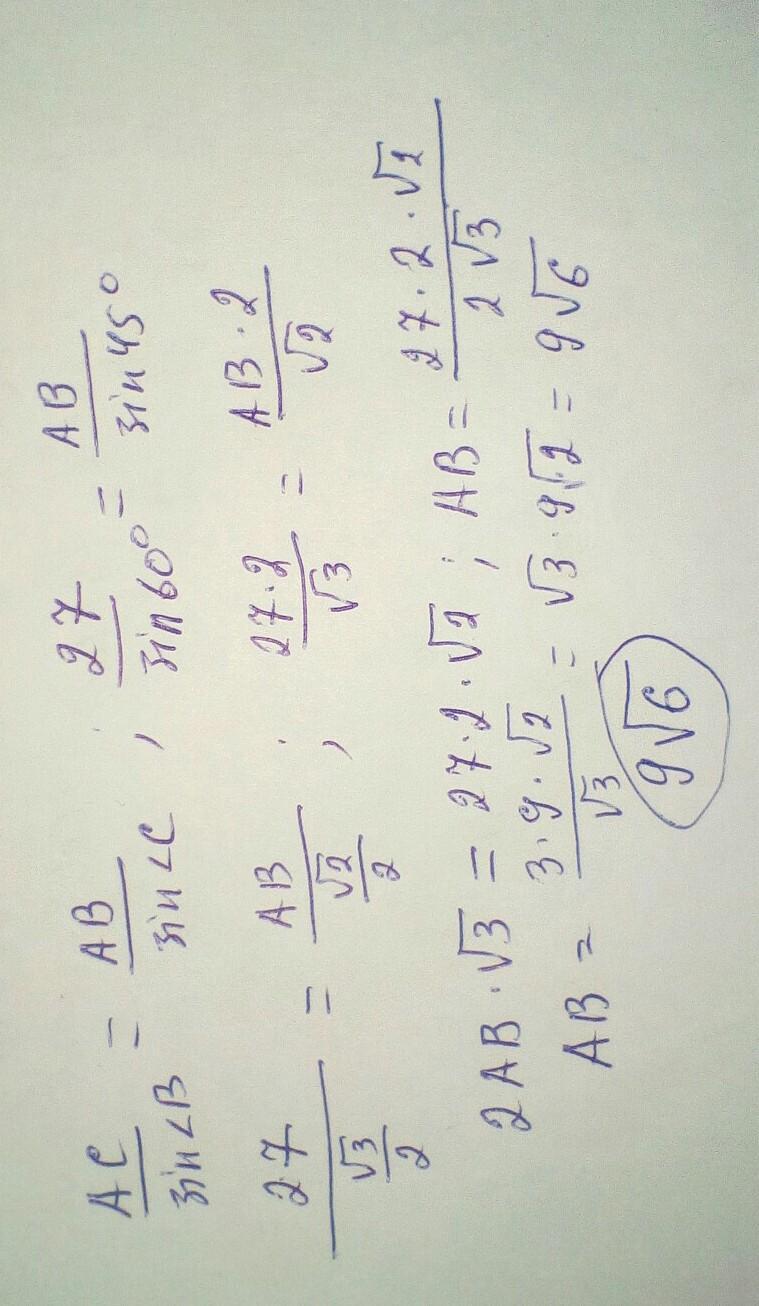 AC/sin∠B = AB/sin∠C ; 27/sin60° = AB/sin45°
27/(√3/2) = AB/(√2/2) ; 27·2/√3 = AB·2/√2
2AB·√3 = 27·2·√2 ; AB = 27·2·√2/2√3
AB = 3·9·√2/√3 = √3·9√2 = 9√6
9√6